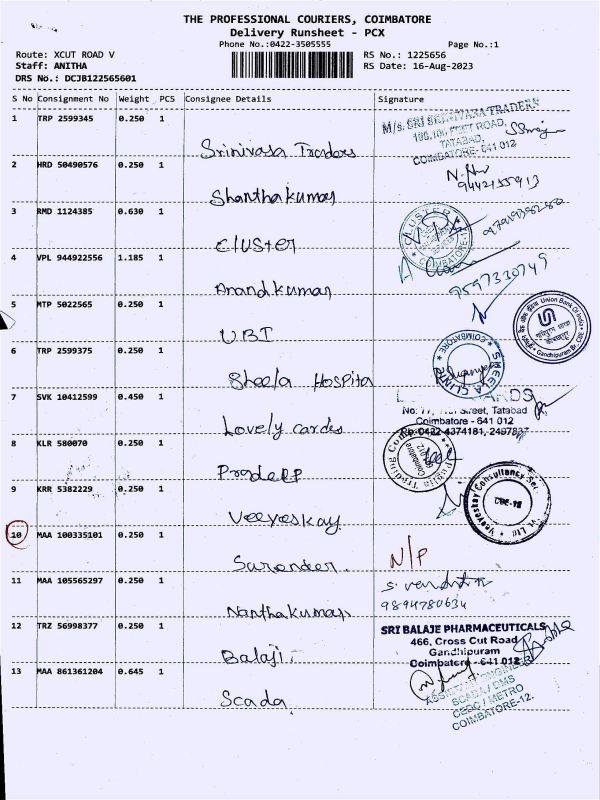 THE PROFESSIONAL COURIERS, COIMBATORE
Delivery Runsheet - PCX
Phone No.:0422-3505555 Page No.:1
Route: XCUT ROAD V RS No.: 1225656
Staff: ANITHA RS Date: 16-Aug-2023
DRS No.: DCJB122565601
S No Consignment No Weight PCS Consignee Details Signature
1 TRP 2599345 0.250 1
Srinivasa Traders
M/s. SRI SRINIVASA TRADERS
100 FEET ROAD,
TATABAD,
COIMBATORE- 641 012
2 HRD 50490576 0.250 1
Shanthakumar
9442155913
3 RMD 1124385 0.630 1
Cluster
CLUSTER
COIMBATORE
4 VPL 944922556 1.185 1
Anandkumar
9597330749
5 MTP 5022565 0.250 1
UBI
Union Bank Of India
Gandhipuram Br.
6 TRP 2599375 0.250 1
Sheela Hospital
SHEELA CLINIC
COIMBATORE
7 SVK 10412599 0.450 1
Lovely cards
No: 77, Street, Tatabad
Coimbatore - 641 012
Ph: 0422-4374181,
8 KLR 580070 0.250 1
Pradeep
Trading Coimbatore
9 KRR 5382229 0.250 1
Veeyeskay
Veeyeskay Consultancy Ser
10 MAA 100335101 0.250 1
Surender
N/P
11 MAA 105565297 0.250 1
Nanthakumar
9894780634
12 TRZ 56998377 0.250 1
Balaji
SRI BALAJE PHARMACEUTICALS
466, Cross Cut Road
Gandhipuram
Coimbatore - 641 012
13 MAA 861361204 0.645 1
Scada
ASSISTANT ENGINEER
SCADA / DMS
CEDC / METRO
COIMBATORE-12.